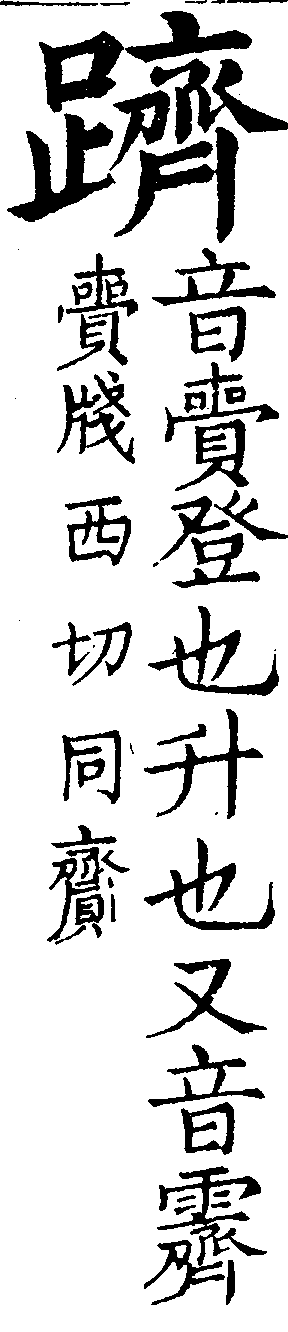 躋
音賷登也升也又音霽
賷牋西切同齎